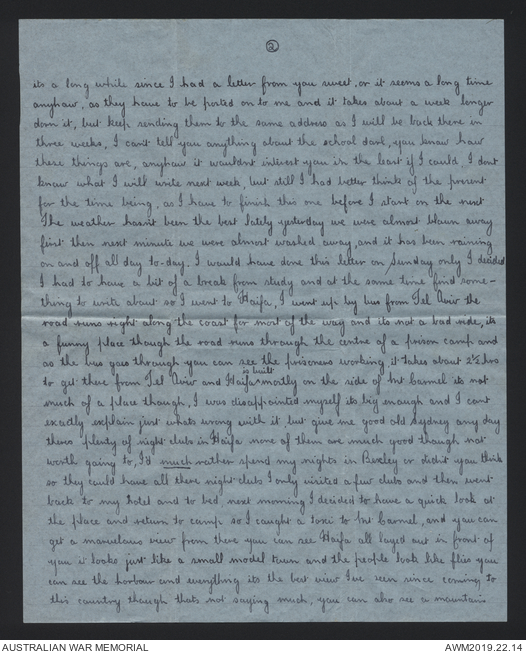 ②
its a long while since I had a letter from you sweet, or it seems a long time
anyhow, as they have to be posted on to me and it takes about a week longer
darn it, but keep sending them to the same address as I will be back there in
three weeks, I can't tell you anything about the school darl, you know how
these things are, anyhow it wouldnt interest you in the least if I could. I dont
know what I will write next week, but still I had better think of the present
for the time being, as I have to finish this one before I start on the next
The weather hasnt been the best lately yesterday we were almost blown away
first then next minute we were almost washed away, and it has been raining
on and off all day to-day. I would have done this letter on Sunday only I decided
I had to have a bit of a break from study and at the same time find some-
thing to write about so I went to Haifa, I went up by bus from Tel Aviv the
road runs right along the coast for most of the way and its not a bad ride, its
a funny place though the road runs through the centre of a prison camp and
as the bus goes through you can see the prisoners working, it takes about 2½ hrs
to get there from Tel Aviv and Haifa is built mostly on the side of Mt Carmel its not
much of a place though, I was disappointed myself its big enough and I cant
exactly explain just whats wrong with it but give me good old Sydney any day
theres plenty of night clubs in Haifa none of them are much good though not
worth going to, I'd much rather spend my nights in Bexley or didn't you think
so they could have all there night clubs I only visited a few clubs and then went
back to my hotel and to bed next morning I decided to have a quick look at
the place and return to camp so I caught a taxi to Mt Carmel, and you can
get a marvelous view from there you can see Haifa all layed out in front of
you it looks just like a small model town and the people look like flies you
can see the harbour and everything its the best view I've seen since coming to
this country though thats not saying much, you can also see a mountain
AUSTRALIAN WAR MEMORIAL
AWM2019.22.14